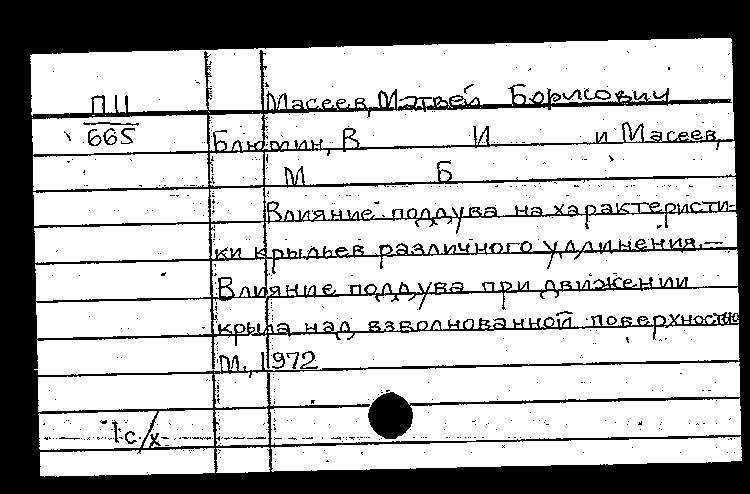 Масеев, Матвей Борисович
ПП
665
Блюмин, В И и Масеев,
М Б
Влияние поддува на характеристи-
ки крыльев различного удлинения.—
Влияние поддува при движении
крыла над взволнованной поверхностью
М., 1972
1 с/х